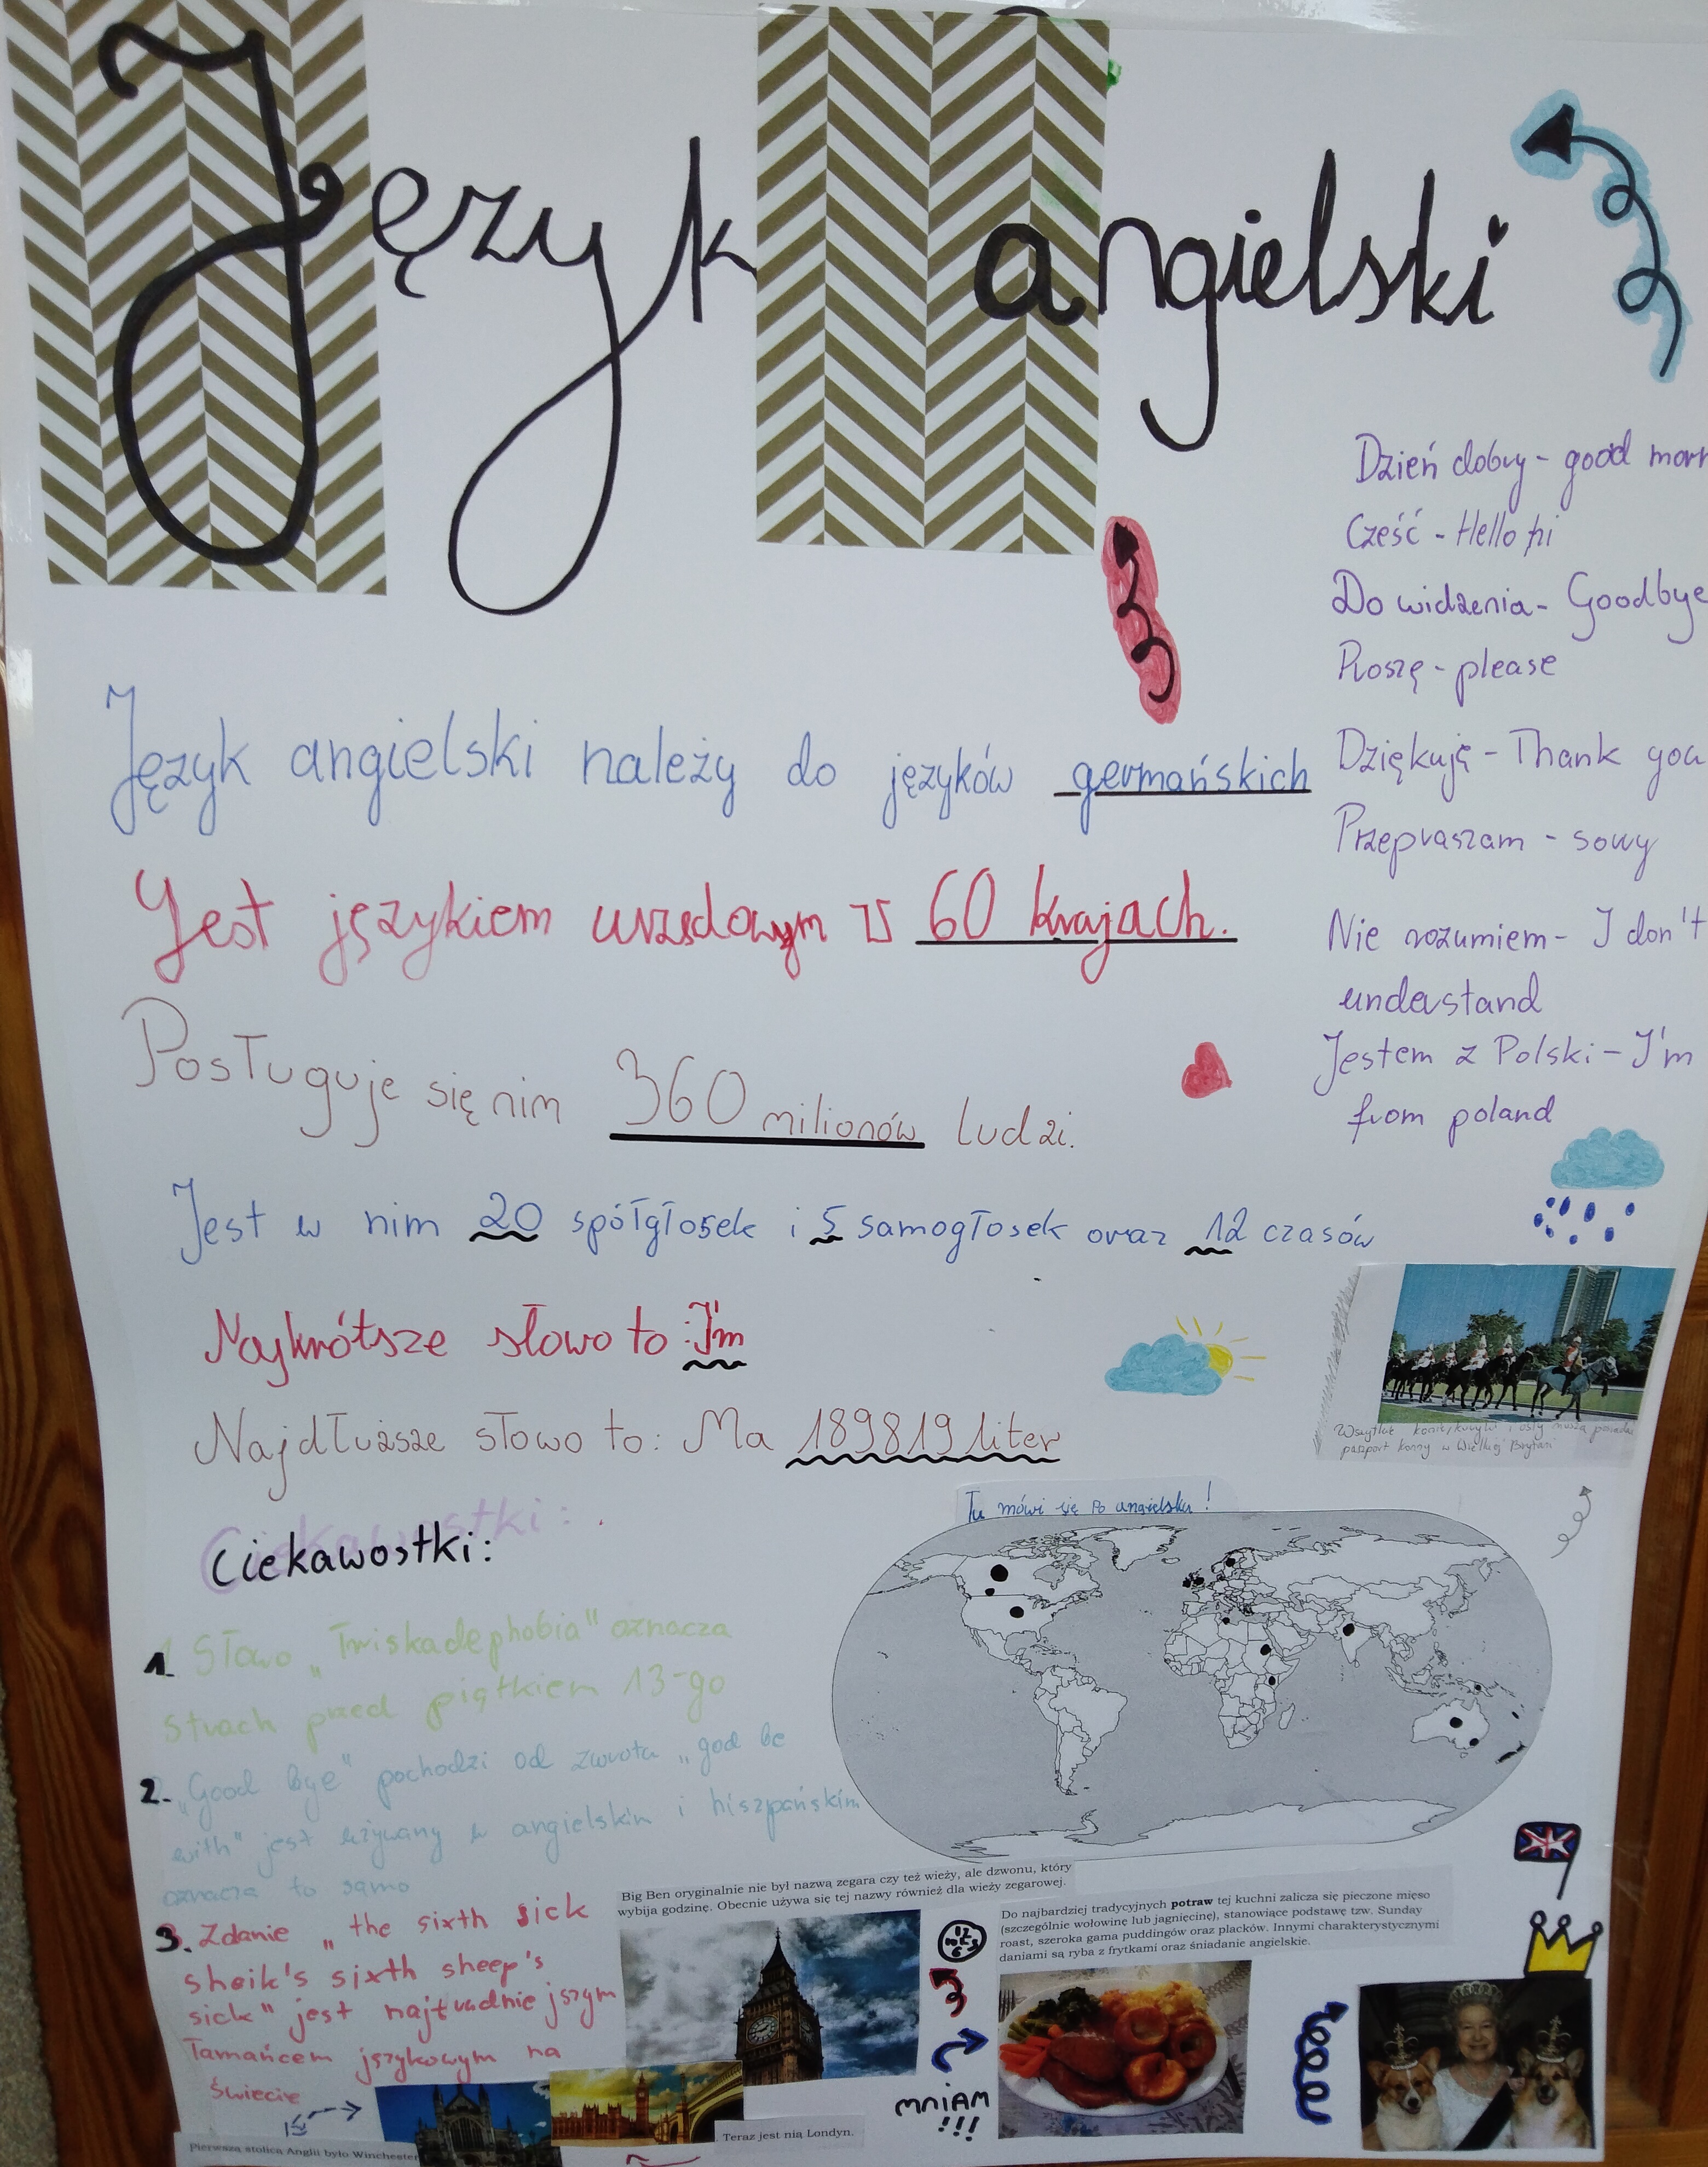 Język angielski
Dzień dobry - good morn
Cześć - Hello hi
Do widzenia - Goodbye
Proszę - please
Dziękuję - Thank you
Przepraszam - sorry
Nie rozumiem - I don't
understand
Jestem z Polski - I'm
from poland
Język angielski należy do języków germańskich
Jest językiem urzędowym w 60 krajach.
Posługuje się nim 360 milionów ludzi.
Jest w nim 20 spółgłosek i 5 samogłosek oraz 12 czasów
Najkrótsze słowo to: I'm
Najdłuższe słowo to: Ma 189819 liter
Wszystkie konie, kucyki i osły muszą posiadać
paszport konny w Wielkiej Brytani
Tu mówi się po angielsku!
Ciekawostki:
1. Słowo "Triskadephobia" oznacza
strach przed piątkiem 13-go
2. "Good bye" pochodzi od zwrotu "god be
with" jest używany w angielskim i hiszpańskim
oznacza to samo
3. Zdanie "the sixth sick
sheik's sixth sheep's
sick" jest najtrudniejszym
łamańcem językowym na
świecie
Big Ben oryginalnie nie był nazwą zegara czy też wieży, ale dzwonu, który
wybija godzinę. Obecnie używa się tej nazwy również dla wieży zegarowej.
Do najbardziej tradycyjnych potraw tej kuchni zalicza się pieczone mięso
(szczególnie wołowinę lub jagnięcinę), stanowiące podstawę tzw. Sunday
roast, szeroka gama puddingów oraz placków. Innymi charakterystycznymi
daniami są ryba z frytkami oraz śniadanie angielskie.
MNIAM
!!!
Pierwszą stolicą Anglii było Winchester
. Teraz jest nią Londyn.